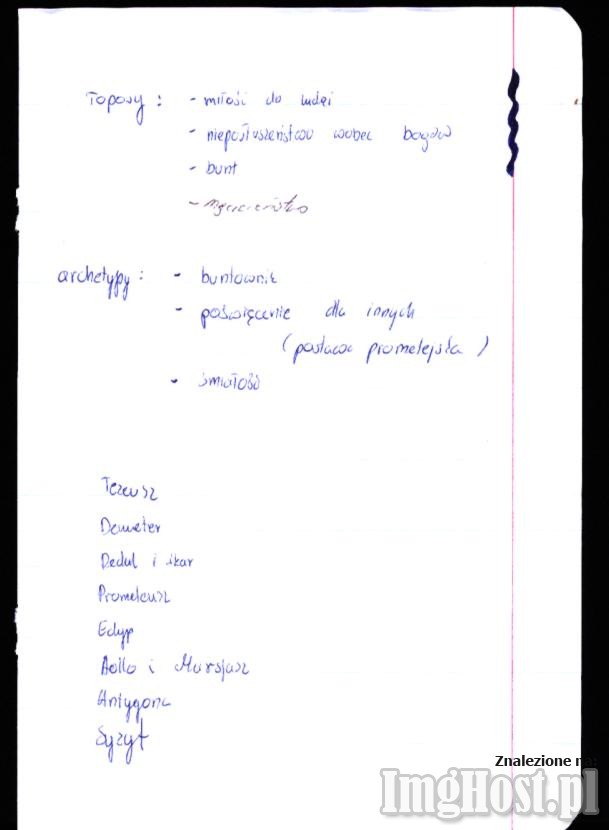 Toposy :
- miłości do ludzi
- nieposłuszeństwo wobec bogów
- bunt
archetypy :
- buntownik
- poświęcenie dla innych
(postawa prometejska )
- śmiałość
Tezeusz
Demeter
Dedal i ikar
Prometeusz
Edyp
Aollo i Marsjasz
Antygona
Syzyf
Znalezione n
ImgHost.pl